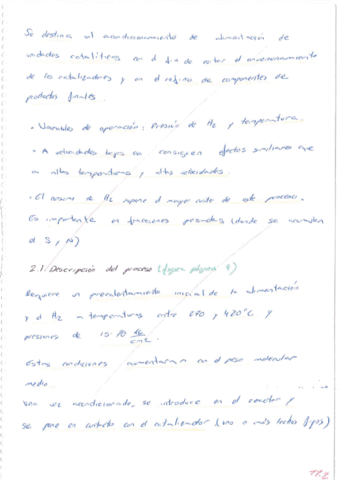 Se destina al acondicionamiento de alimentación de
unidades catalíticas con el fin de evitar el envenenamiento
de los catalizadores y en el refino de componentes de
productos finales.
· Variables de operación: Presión de H2 y temperatura.
· A velocidades bajas se consiguen efectos similares que
a altas temperaturas y altas velocidades.
· El consumo de H2 supone el mayor coste de este proceso.
Es importante en fracciones pesadas (donde se acumulan
el S, N)
2.1. Descripción del proceso (figura página 9)
Requiere un precalentamiento inicial de la alimentación
y el H2 a temperaturas entre y 420°C y
presiones de 15-70 kg/cm2.
Estas condiciones aumentarán con el peso molecular
medio.
Una vez acondicionado, se introduce en el reactor y
se pone en contacto con el catalizador (uno o más lechos fijos)